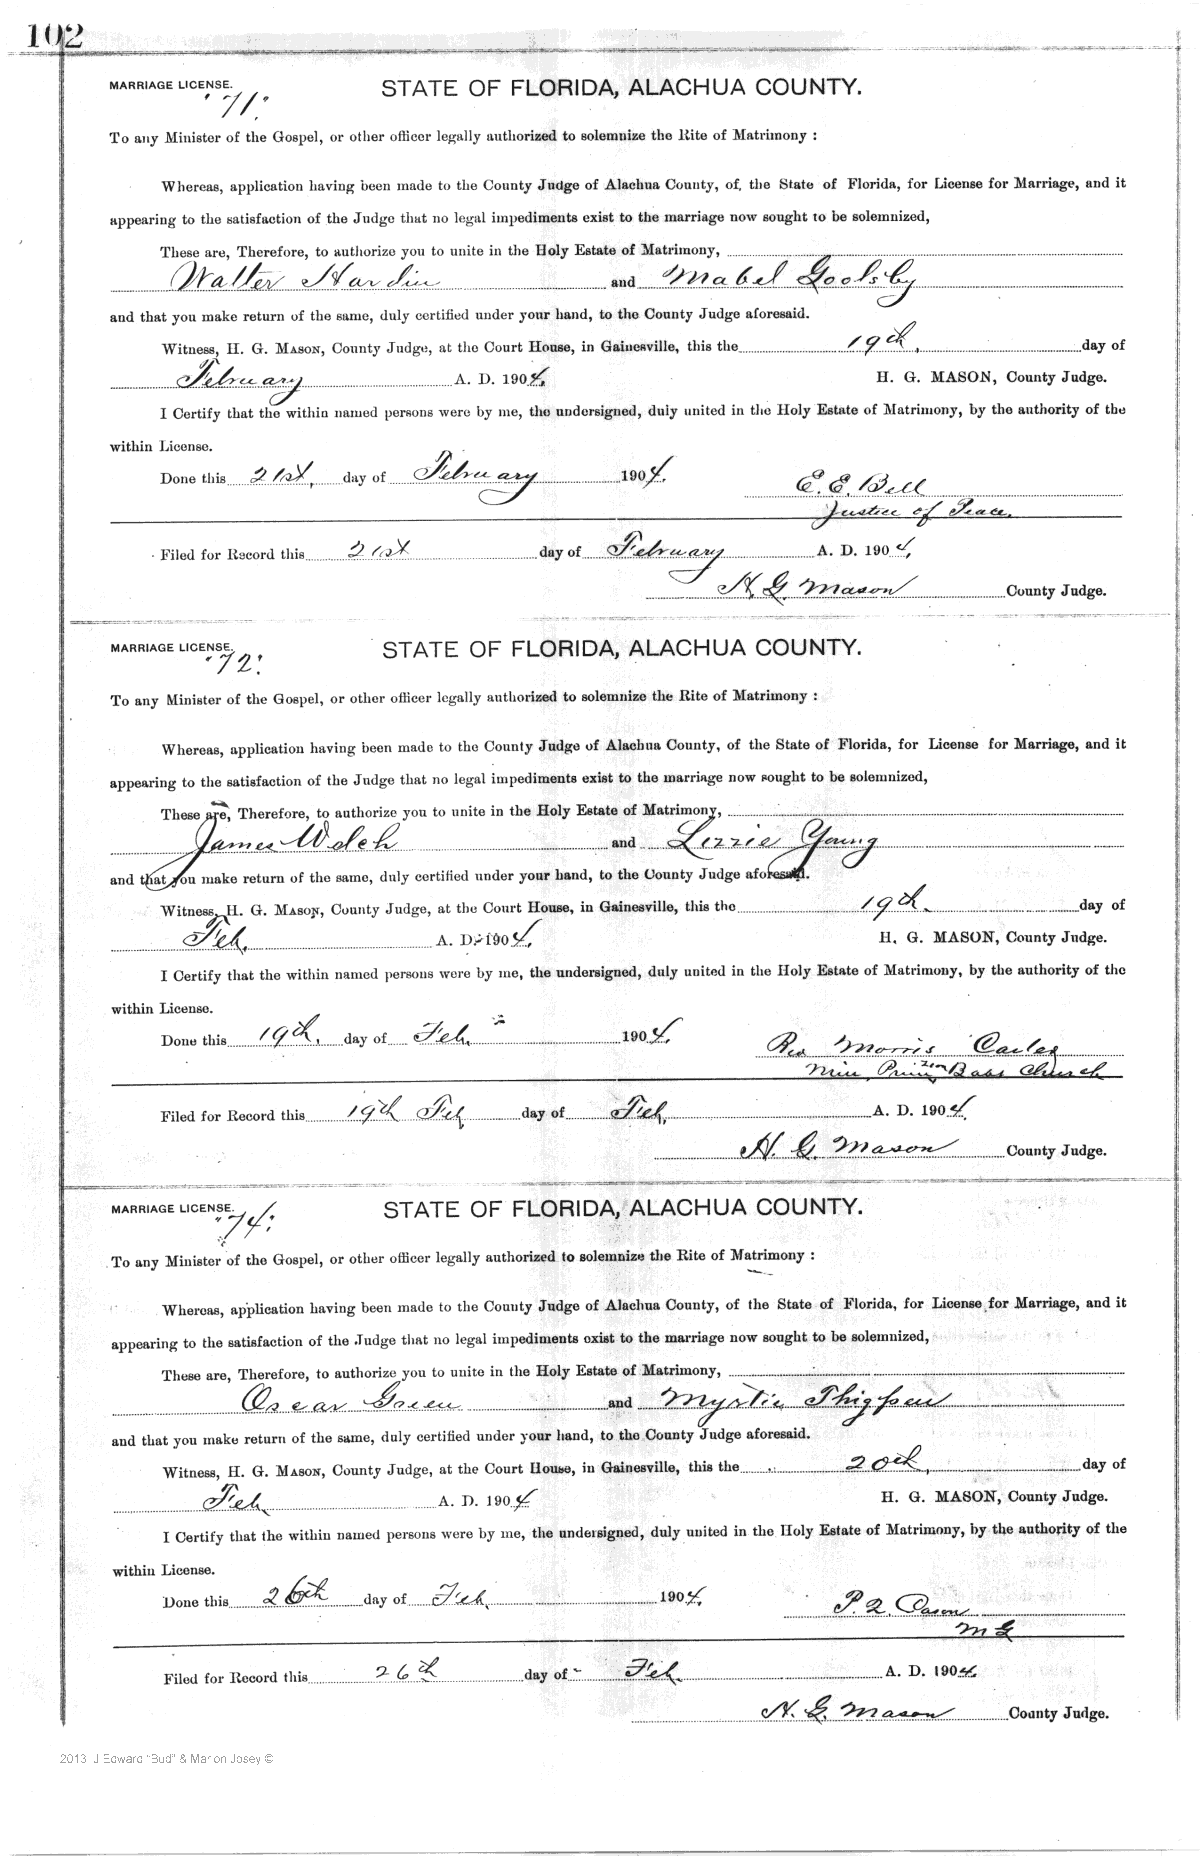 102
MARRIAGE LICENSE. STATE OF FLORIDA, ALACHUA COUNTY.
"71."
To any Minister of the Gospel, or other officer legally authorized to solemnize the Rite of Matrimony :
Whereas, application having been made to the County Judge of Alachua County, of, the State of Florida, for License for Marriage, and it
appearing to the satisfaction of the Judge that no legal impediments exist to the marriage now sought to be solemnized,
These are, Therefore, to authorize you to unite in the Holy Estate of Matrimony,
Walter Hardin and Mabel Goolsby
and that you make return of the same, duly certified under your hand, to the County Judge aforesaid.
Witness, H. G. MASON, County Judge, at the Court House, in Gainesville, this the 19th, day of
February A. D. 1904. H. G. MASON, County Judge.
I Certify that the within named persons were by me, the undersigned, duly united in the Holy Estate of Matrimony, by the authority of the
within License.
Done this 21st, day of February 1904. E. E. Bell
Justice of Peace.
Filed for Record this 21st day of February A. D. 1904,
H. G. Mason County Judge.
MARRIAGE LICENSE. STATE OF FLORIDA, ALACHUA COUNTY.
"72."
To any Minister of the Gospel, or other officer legally authorized to solemnize the Rite of Matrimony :
Whereas, application having been made to the County Judge of Alachua County, of the State of Florida, for License for Marriage, and it
appearing to the satisfaction of the Judge that no legal impediments exist to the marriage now sought to be solemnized,
These are, Therefore, to authorize you to unite in the Holy Estate of Matrimony,
James Welch and Lizzie Young
and that you make return of the same, duly certified under your hand, to the County Judge aforesaid.
Witness, H. G. MASON, County Judge, at the Court House, in Gainesville, this the 19th. day of
Feb. A. D. 1904. H. G. MASON, County Judge.
I Certify that the within named persons were by me, the undersigned, duly united in the Holy Estate of Matrimony, by the authority of the
within License.
Done this 19th, day of Feb. 1904. Rev Morris
Church
Filed for Record this 19th Feb day of Feb, A. D. 1904.
H. G. Mason County Judge.
MARRIAGE LICENSE. STATE OF FLORIDA, ALACHUA COUNTY.
"74."
To any Minister of the Gospel, or other officer legally authorized to solemnize the Rite of Matrimony :
Whereas, application having been made to the County Judge of Alachua County, of the State of Florida, for License for Marriage, and it
appearing to the satisfaction of the Judge that no legal impediments exist to the marriage now sought to be solemnized,
These are, Therefore, to authorize you to unite in the Holy Estate of Matrimony,
Oscar Green and Myrtie Thigpen
and that you make return of the same, duly certified under your hand, to the County Judge aforesaid.
Witness, H. G. MASON, County Judge, at the Court House, in Gainesville, this the 20th, day of
Feb A. D. 1904 H. G. MASON, County Judge.
I Certify that the within named persons were by me, the undersigned, duly united in the Holy Estate of Matrimony, by the authority of the
within License.
Done this 26th day of Feb. 1904. P. Q. Cason
M G
Filed for Record this 26th day of Feb. A. D. 1904.
H. G. Mason County Judge.
2013 J Edward "Bud" & Marion Josey ©